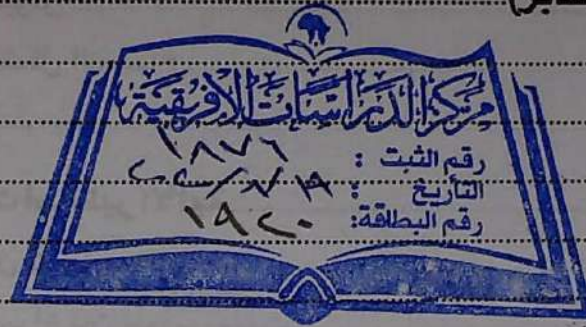 مركز الدراسات الأفريقية
رقم الثبت : ١٨٧٦
التأريخ :
رقم البطاقة: ١٩٢٠